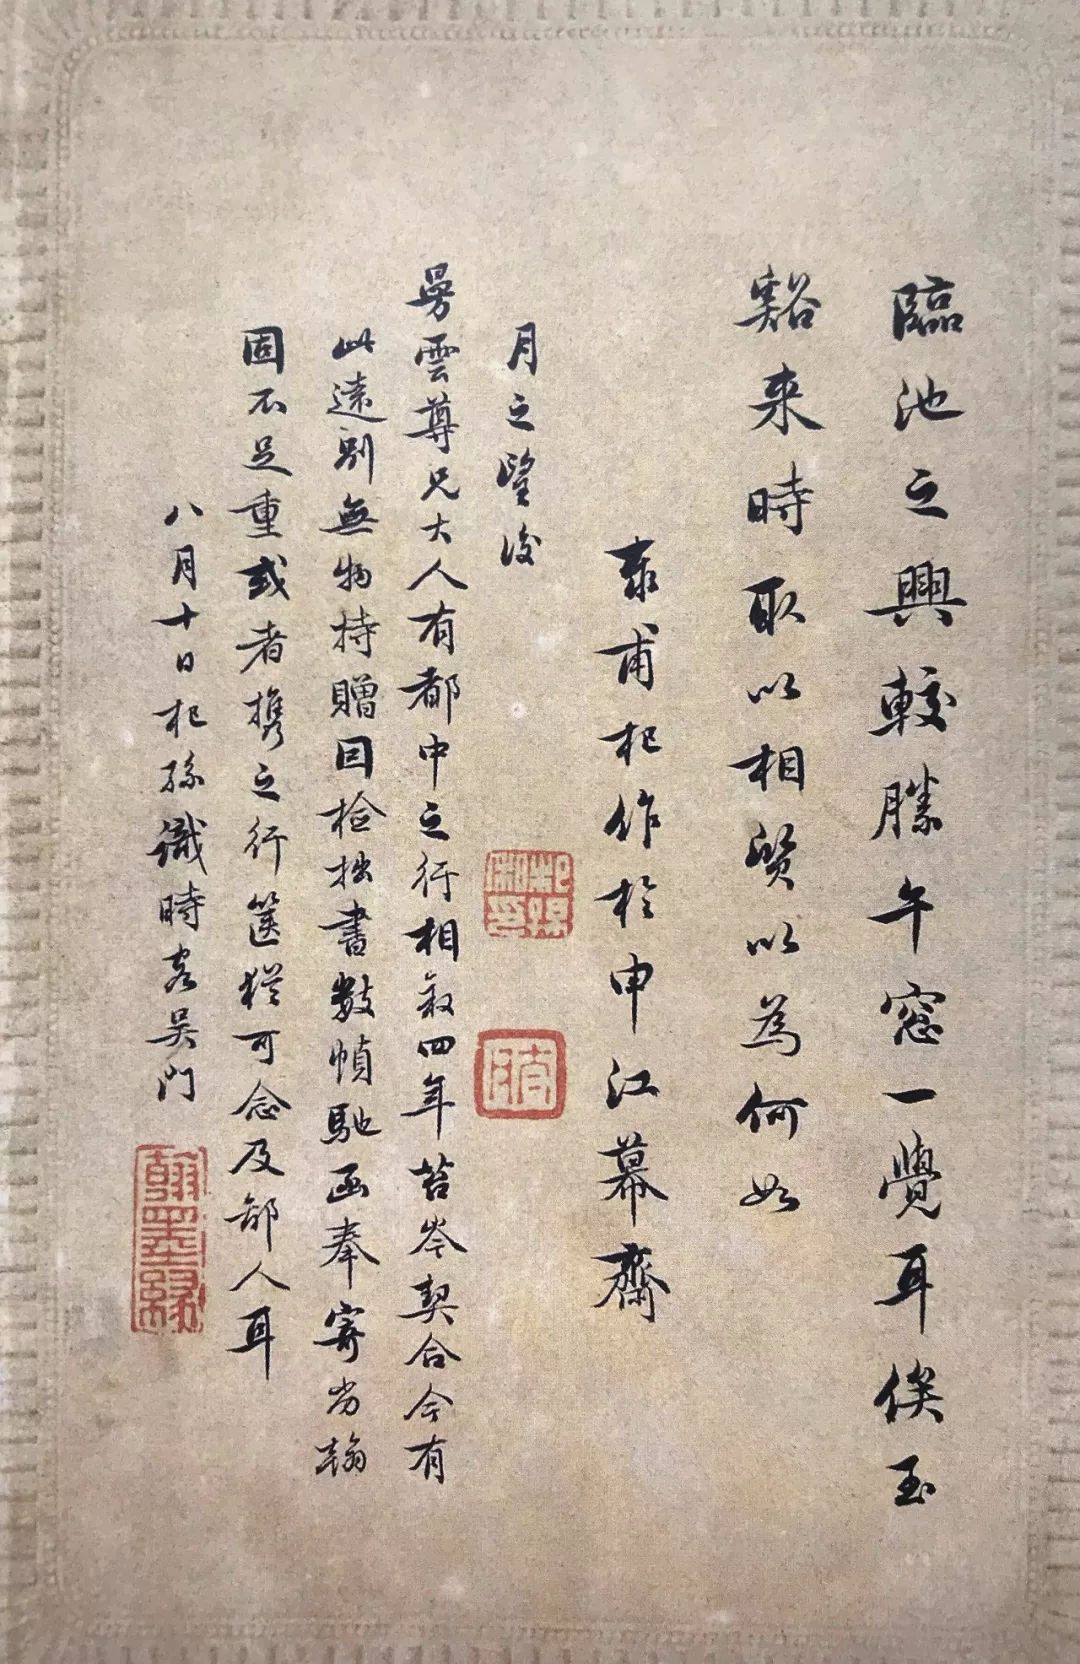 臨池之興較勝午窓一覺耳俟玉
谿来時取以相質以為何如
泰甫杞作於申江幕齋
月之望後
曼雲尊兄大人有都中之行相敘四年苔岑契合今有
此遠别無物持贈因檢拙書數幀馳函奉寄劣翰
固不足重或者攜之行篋猶可念及部人耳
八月十日杞孫識時客吴門
翰墨緣